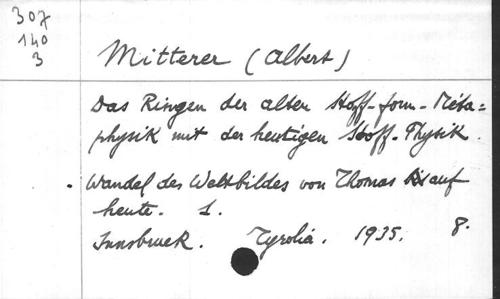 307
140
3
Mitterer (Albert)
Das Ringen der alten Stoff-form-Meta=
physik mit der heutigen Stoff-Physik.
Wandel des Weltbildes von Thomas auf
heute. 1.
Innsbruck. Tyrolia. 1935. 8.